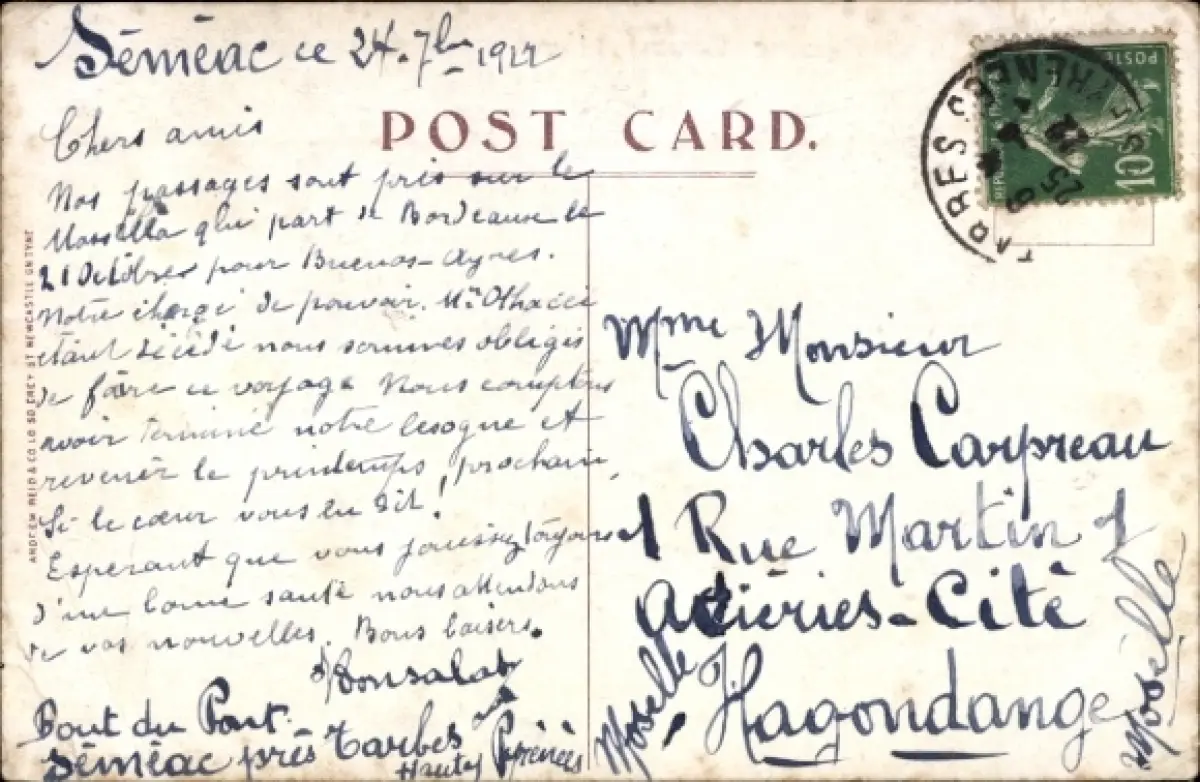 Séméac ce 24. 7bre 1922
POST CARD.
Chers amis
Nos passages sont pris sur le
Massilla qui part de Bordeaux le
21 Octobre pour Buenos-Ayres.
Notre chargé de pouvoir. Mr
étant décédé nous sommes obligés
de faire ce voyage Nous comptons
avoir terminé notre besogne et
revenir le printemps prochain,
Si le cœur vous en dit!
Esperant que vous jouissez toujours
d'une bonne santé nous attendons
de vos nouvelles. Bons baisers.
Bout du Pont.
Séméac près Tarbes
Hautes Pyrénées
ANDREW REID & CO LD 50 GREY ST NEWCASTLE ON TYNE
POSTES
10
25-9
22
Mme Monsieur
Charles Carpreau
1 Rue Martin 1
Aciéries-Cité
Hagondange
Moselle
Moselle